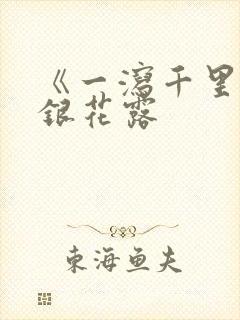 《一泻千里
銀花露
東海鱼夫